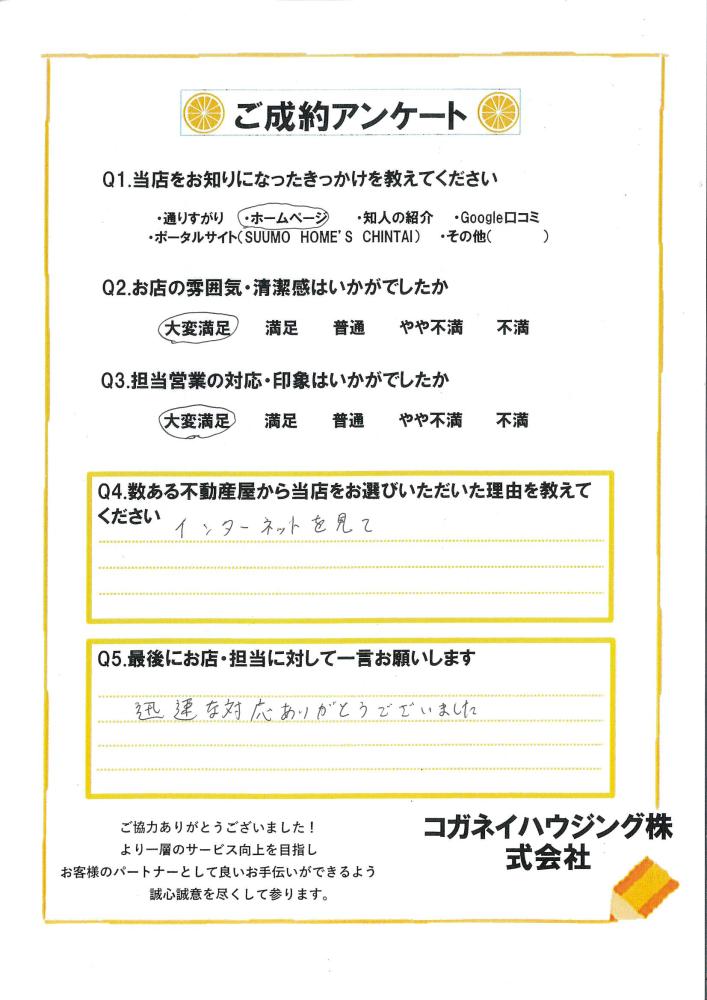 ご成約アンケート
Q1.当店をお知りになったきっかけを教えてください
・通りすがり ・ホームページ ・知人の紹介 ・Google口コミ
・ポータルサイト(SUUMO HOME'S CHINTAI) ・その他( )
Q2.お店の雰囲気・清潔感はいかがでしたか
大変満足 満足 普通 やや不満 不満
Q3.担当営業の対応・印象はいかがでしたか
大変満足 満足 普通 やや不満 不満
Q4.数ある不動産屋から当店をお選びいただいた理由を教えて
ください
インターネットを見て
Q5.最後にお店・担当に対して一言お願いします
迅速な対応ありがとうございました
ご協力ありがとうございました!
より一層のサービス向上を目指し
お客様のパートナーとして良いお手伝いができるよう
誠心誠意を尽くして参ります。
コガネイハウジング株
式会社